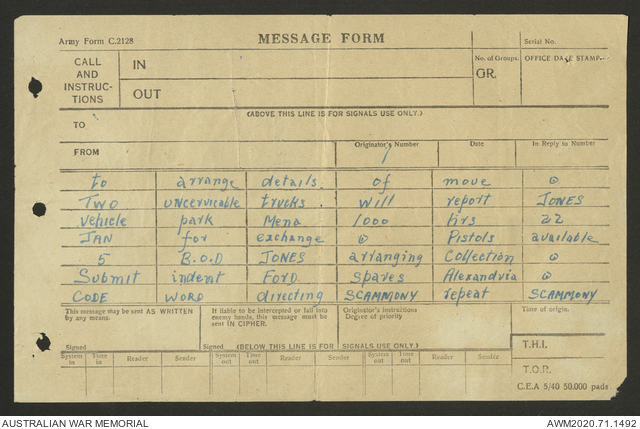 Army Form C.2128
MESSAGE FORM
Serial No.
CALL AND INSTRUC- TIONS
IN
OUT
No. of Groups.
GR.
OFFICE DATE STAMP
(ABOVE THIS LINE IS FOR SIGNALS USE ONLY.)
TO
FROM
Originator's Number
Date
In Reply to Number
to arrange details of move
TWO unservicable trucks will report JONES
Vehicle park Mena 1000 hrs 22
JAN for exchange Pistols available
5 B.O.D JONES arranging Collection
Submit indent FORD Spares Alexandria
CODE WORD directing SCAMMONY repeat SCAMMONY
This message may be sent AS WRITTEN by any means.
If liable to be intercepted or fall into enemy hands, this message must be sent IN CIPHER.
Originator's Instructions Degree of priority
Time of origin.
Signed
Signed
(BELOW THIS LINE IS FOR SIGNALS USE ONLY.)
T.H.I.
System in
Time in
Reader
Sender
System out
Time out
Reader
Sender
System out
Time out
Reader
Sender
T.O.R.
C.E.A 5/40 50.000 pads
AUSTRALIAN WAR MEMORIAL
AWM2020.71.1492